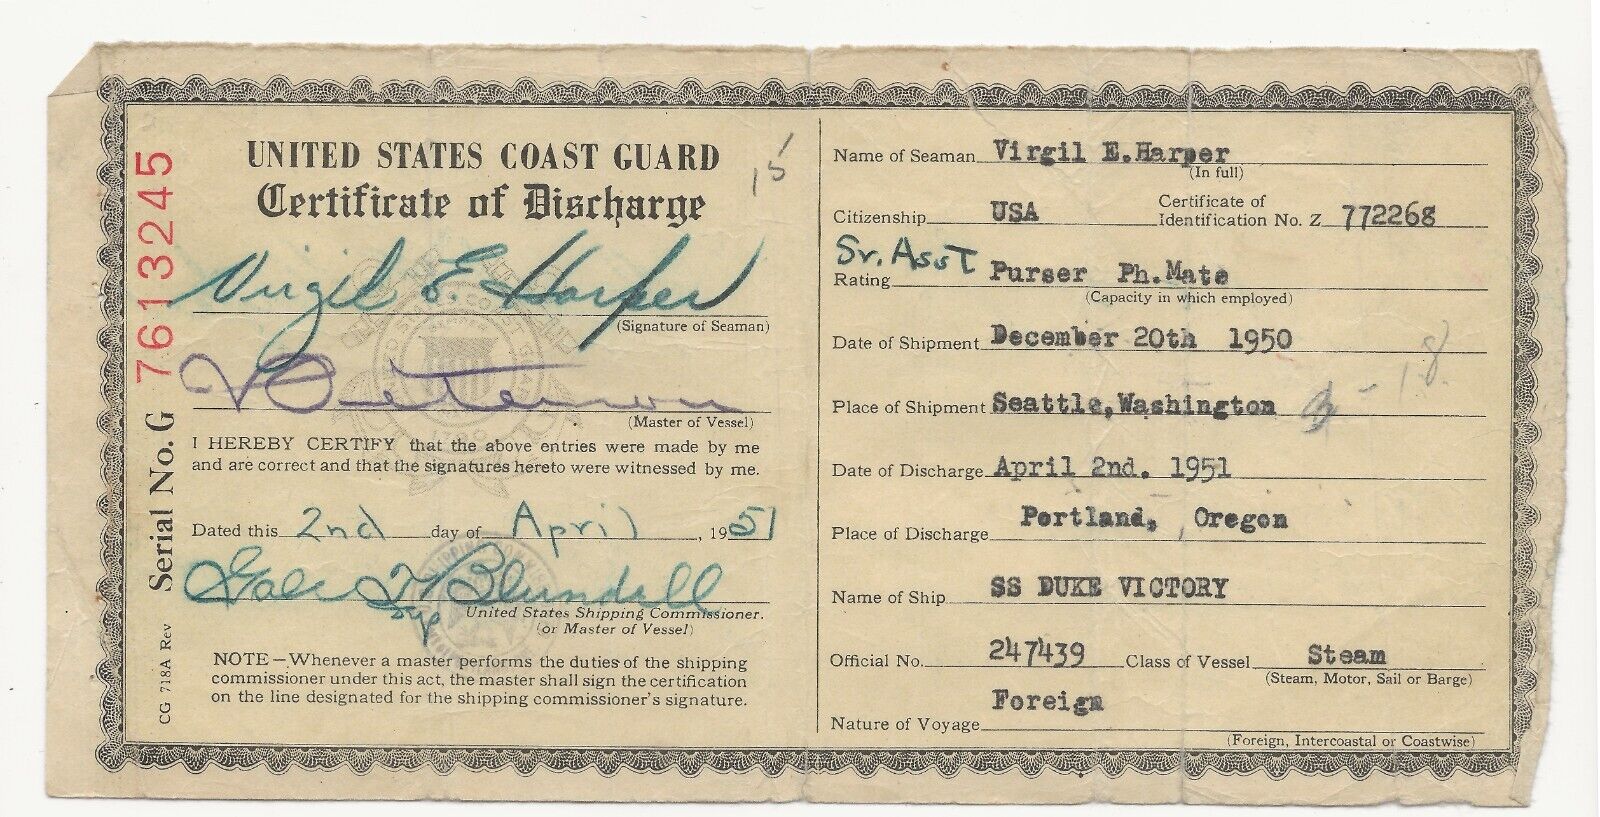 UNITED STATES COAST GUARD
Certificate of Discharge
15
Virgil E. Harper
(Signature of Seaman)
(Master of Vessel)
I HEREBY CERTIFY that the above entries were made by me
and are correct and that the signatures hereto were witnessed by me.
Dated this 2nd day of April, 1951
Gale Blundell
United States Shipping Commissioner.
(or Master of Vessel)
NOTE—Whenever a master performs the duties of the shipping
commissioner under this act, the master shall sign the certification
on the line designated for the shipping commissioner's signature.
Serial No. G 7613245
CG 718A Rev
Name of Seaman Virgil E.Harper
(In full)
Citizenship USA Certificate of
Identification No. Z 772268
Sr. Asst
Rating Purser Ph.Mate
(Capacity in which employed)
Date of Shipment December 20th 1950
Place of Shipment Seattle,Washington
Date of Discharge April 2nd. 1951
Place of Discharge Portland, Oregon
Name of Ship SS DUKE VICTORY
Official No. 247439 Class of Vessel Steam
(Steam, Motor, Sail or Barge)
Nature of Voyage Foreign
(Foreign, Intercoastal or Coastwise)